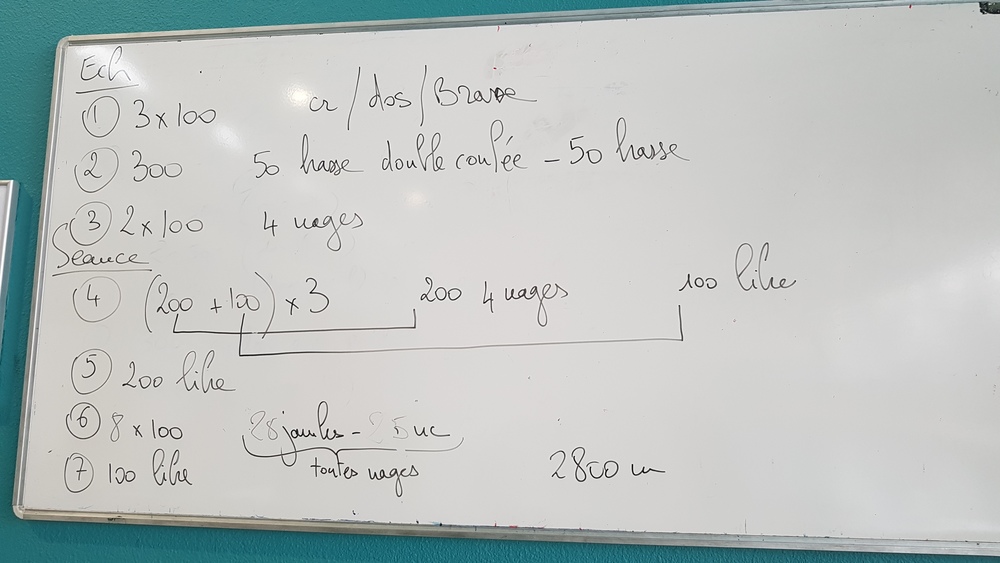 Ech
① 3 x 100 cr / dos / Brasse
② 300 50 brasse double coulée - 50 brasse
③ 2 x 100 4 nages
Séance
④ (200 + 100) x 3 200 4 nages 100 libre
⑤ 200 libre
⑥ 8 x 100 25 jambes - 25 nc
toutes nages
⑦ 100 libre 2800 m